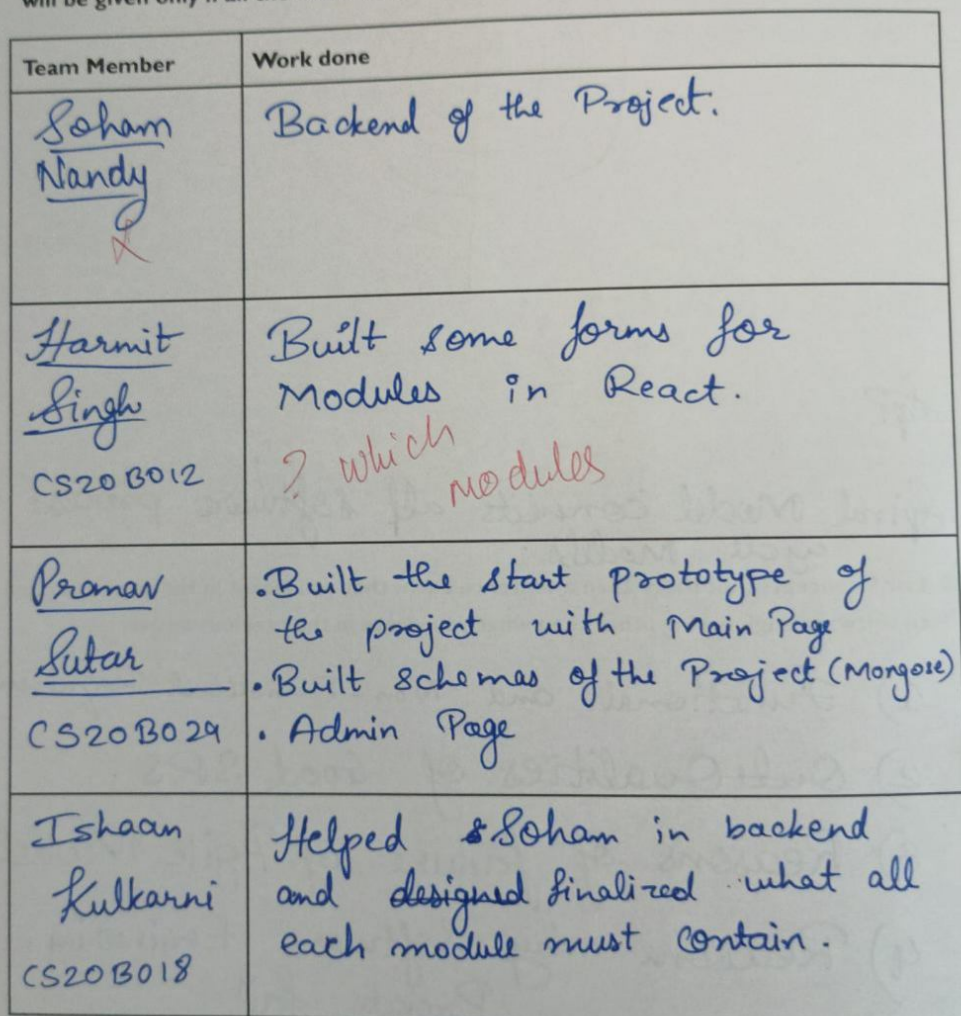 will be given only if all
Team Member Work done
Soham
Nandy
Backend of the Project.
Harmit
Singh
CS20B012
Built some forms for
Modules in React.
? which
modules
Pranav
Sutar
CS20B029
• Built the start prototype of
the project with Main Page
• Built schemas of the Project (Mongose)
• Admin Page
Ishaan
Kulkarni
CS20B018
Helped Soham in backend
and designed finalized what all
each module must contain.